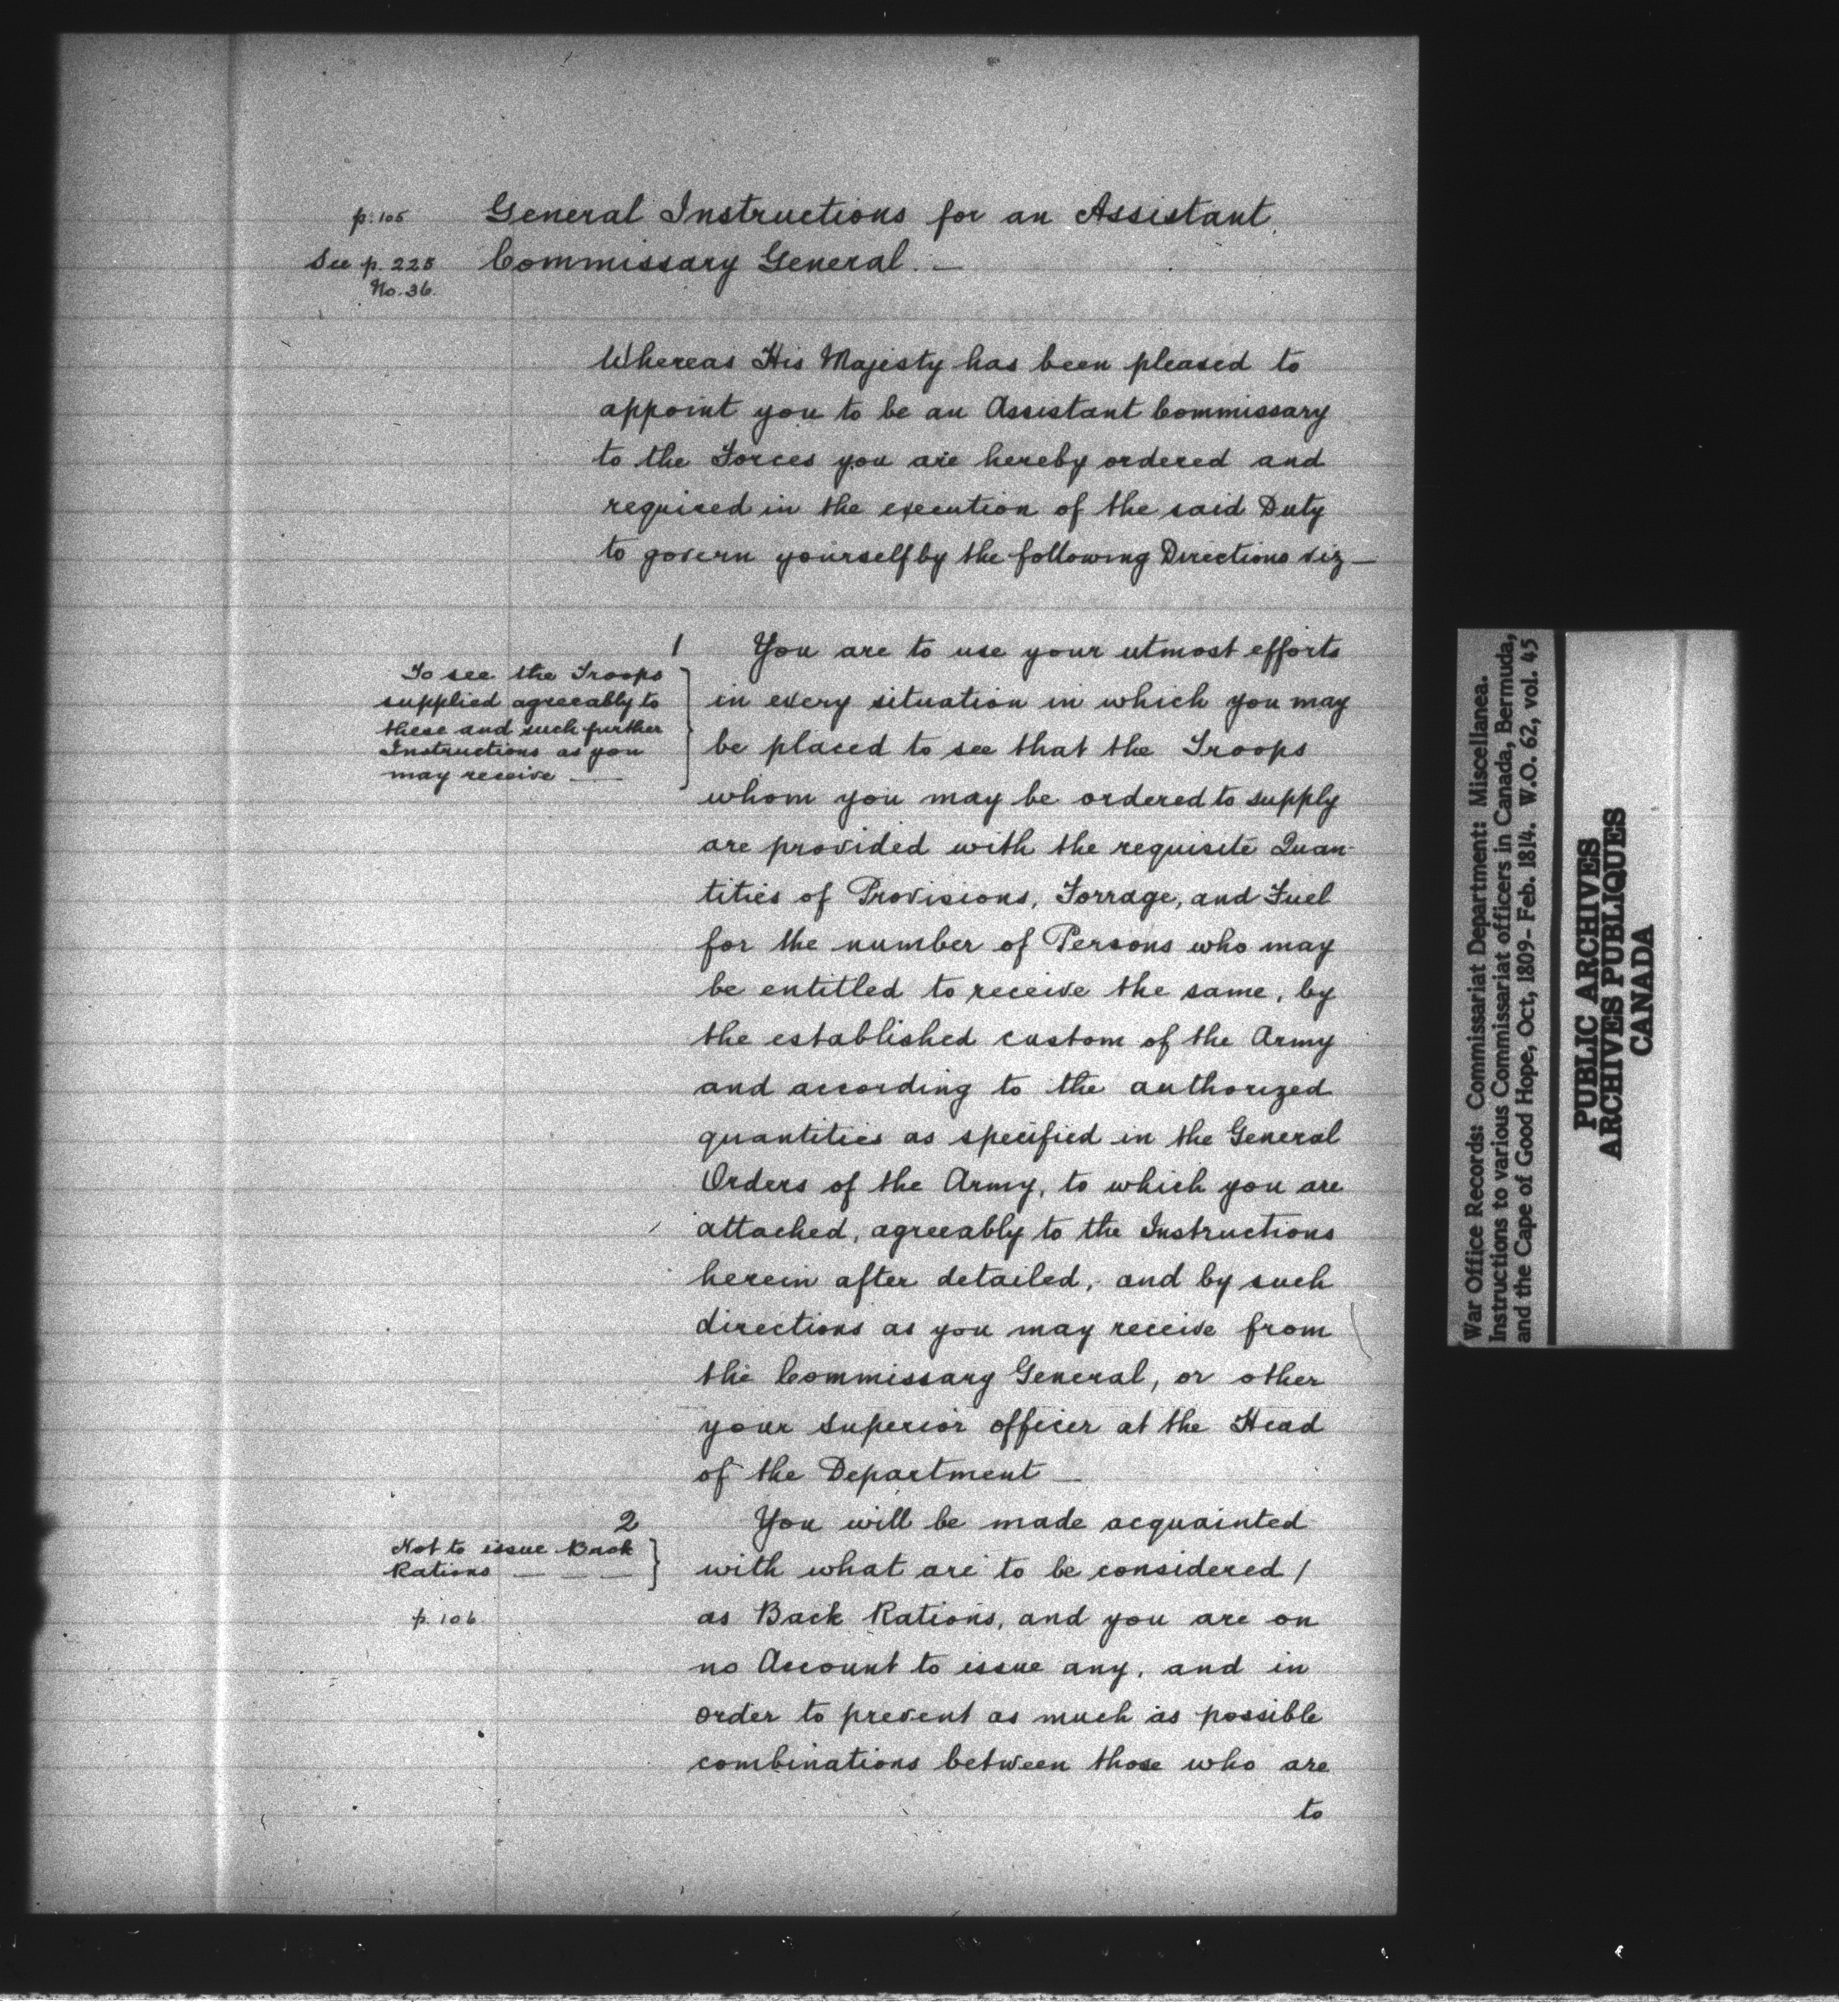 p. 105
General Instructions for an Assistant
See p. 225
Commissary General. —
No. 36.
Whereas His Majesty has been pleased to
appoint you to be an Assistant Commissary
to the Forces you are hereby ordered and
required in the execution of the said Duty
to govern yourself by the following Directions viz —
1
To see the Troops
supplied agreeably to
these and such further
Instructions as you
may receive —
You are to use your utmost efforts
in every situation in which you may
be placed to see that the Troops
whom you may be ordered to supply
are provided with the requisite Quan-
tities of Provisions, Forrage, and Fuel
for the number of Persons who may
be entitled to receive the same, by
the established custom of the Army
and according to the authorized
quantities as specified in the General
Orders of the Army, to which you are
attached, agreeably to the Instructions
herein after detailed, and by such
directions as you may receive from
the Commissary General, or other
your superior officer at the Head
of the Department —
2
Not to issue Back
Rations — — —
p. 106
You will be made acquainted
with what are to be considered /
as Back Rations, and you are on
no Account to issue any, and in
order to prevent as much as possible
combinations between those who are
to
War Office Records: Commissariat Department: Miscellanea.
Instructions to various Commissariat officers in Canada, Bermuda,
and the Cape of Good Hope, Oct, 1809- Feb. 1814. W.O. 62, vol. 45
PUBLIC ARCHIVES
ARCHIVES PUBLIQUES
CANADA